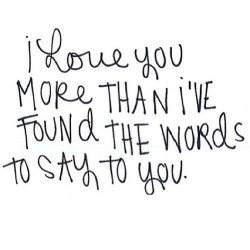 i Love you
MORE THAN i'VE
FOUNd THE WORds
TO SAY TO YOU.